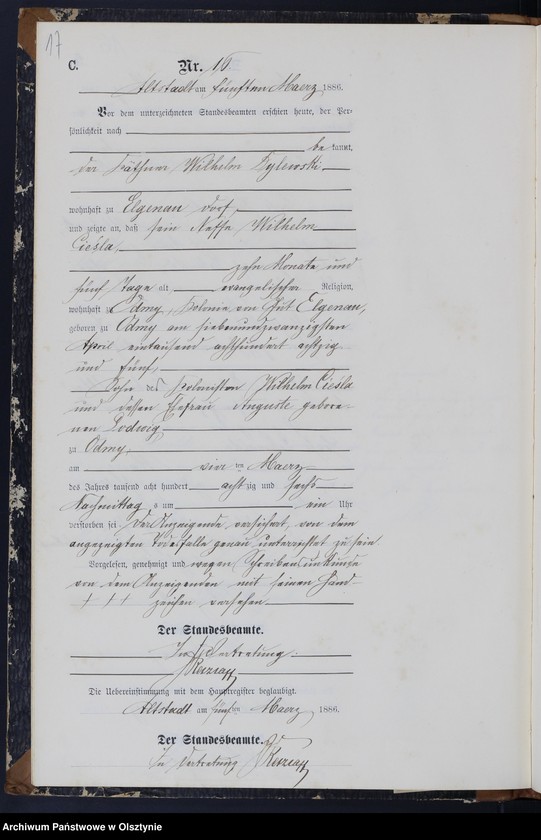 17
C.
Nr. 16
Altstadt am fünften Maerz 1886.
Vor dem unterzeichneten Standesbeamten erschien heute, der Per-
sönlichkeit nach
be kannt,
der Käthner Wilhelm
wohnhaft zu Elgenau Dorf,
und zeigte an, daß sein Neffe Wilhelm
Cieśla,
zehn Monate und
fünf Tage alt evangelischer Religion,
wohnhaft zu Odmy, Kolonie von Gut Elgenau,
geboren zu Odmy am siebenundzwanzigsten
April eintausend achthundert achtzig
und fünf,
Sohn des Kolonisten Wilhelm Cieśla
und dessen Ehefrau Auguste gebore-
nen Ludwig
zu Odmy,
am vier ten Maerz
des Jahres tausend acht hundert acht zig und sechs
Nachmittag s um ein Uhr
verstorben sei. Der Anzeigende versichert, von dem
angezeigten Todesfalle genau unterrichtet zu sein
Vorgelesen, genehmigt und wegen Schreibensunkunde
von dem Anzeigenden mit seinen Hand-
+ + + zeichen versehen.
Der Standesbeamte.
In Vertretung.
Die Uebereinstimmung mit dem Hauptregister beglaubigt.
Altstadt am fünften Maerz 1886.
Der Standesbeamte.
In Vertretung
Archiwum Państwowe w Olsztynie